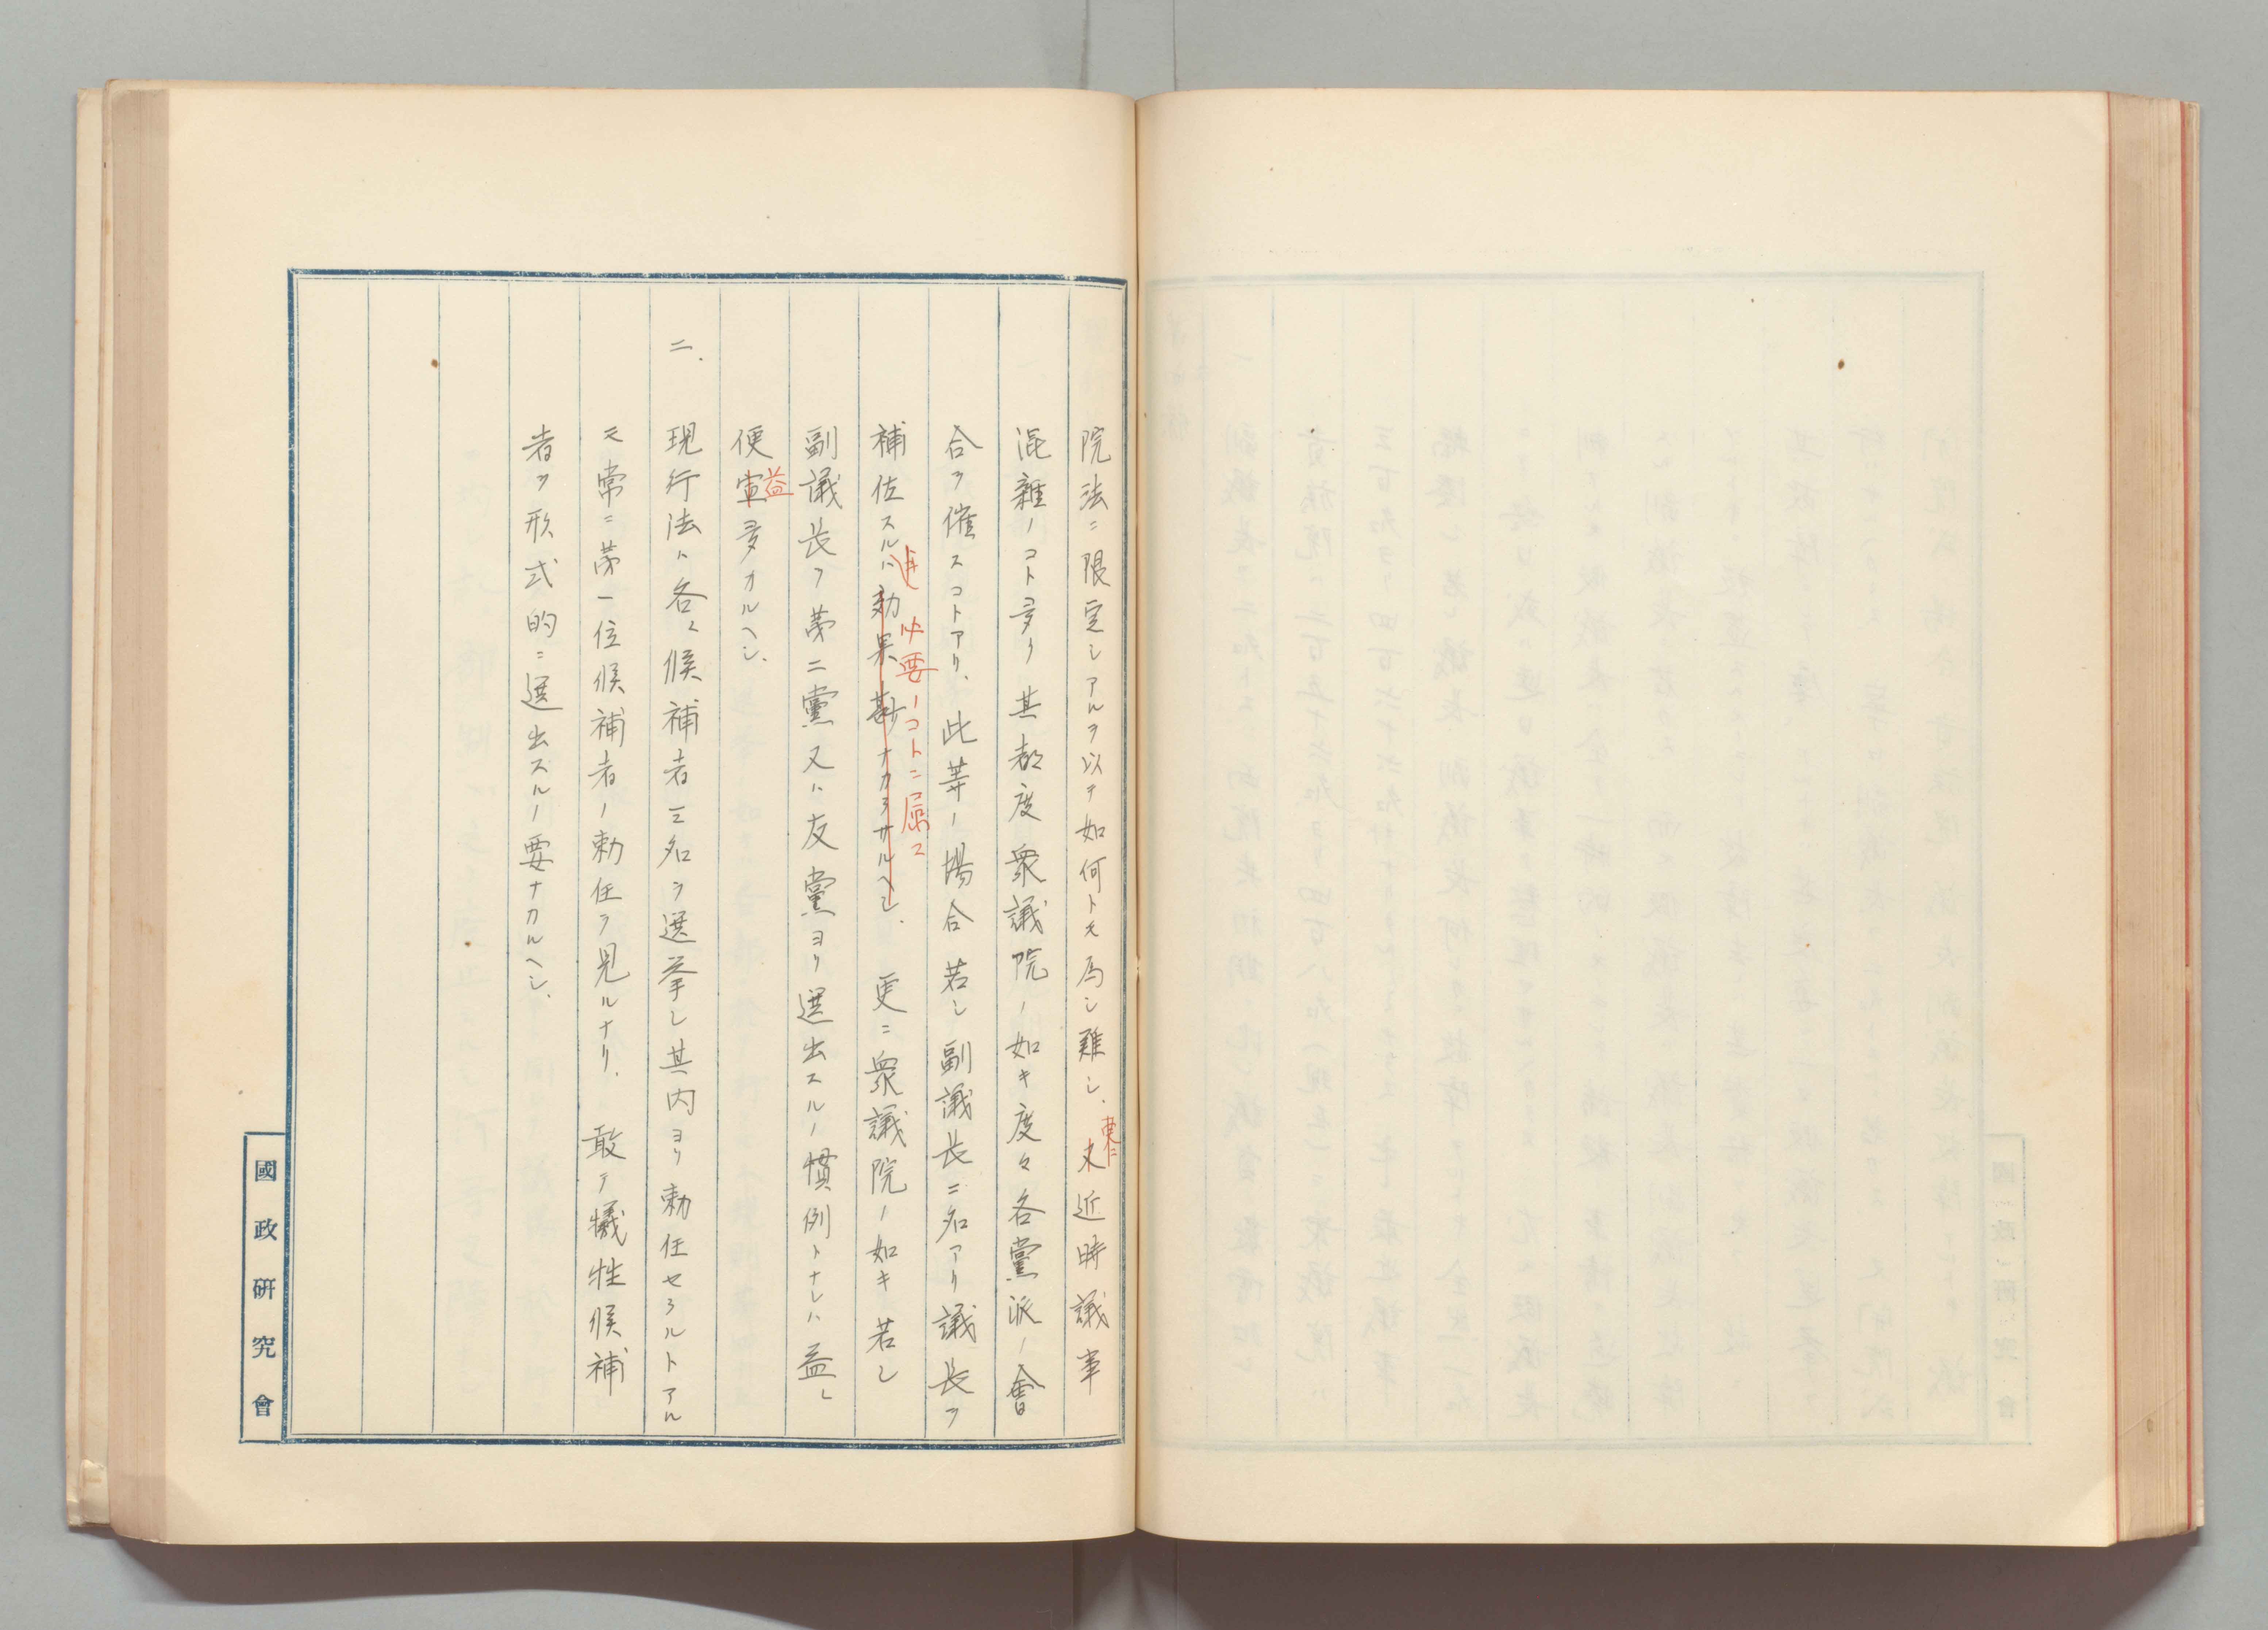 院法ニ限定シアルヲ以テ如何トモ為シ難シ、更ニ近時議事
混雜ノコト多ク其都度衆議院ノ如キ度々各黨派ノ會
合ヲ催スコトアリ、此等ノ場合若シ副議長二名アリ議長ヲ
補佐スルハ効果尠ナカラサルヘシ、更ニ衆議院ノ如キ若シ
必要ノコトニ属ス
副議長ヲ第二黨又ハ友黨ヨリ選出スルノ慣例トナレハ益々
便益多カルヘシ、
二、現行法ハ各々候補者三名ヲ選挙シ其内ヨリ勅任セラルトアル
モ常ニ第一位候補者ノ勅任ヲ見ルナリ、敢テ犠牲候補
者ヲ形式的ニ選出スルノ要ナカルヘシ、
國政研究會